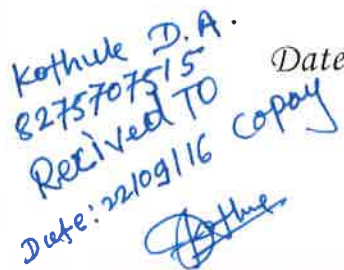 Kothule D.A.
Date
8275707515
Recived TO
copay
Date: 22/09/16
Kothule